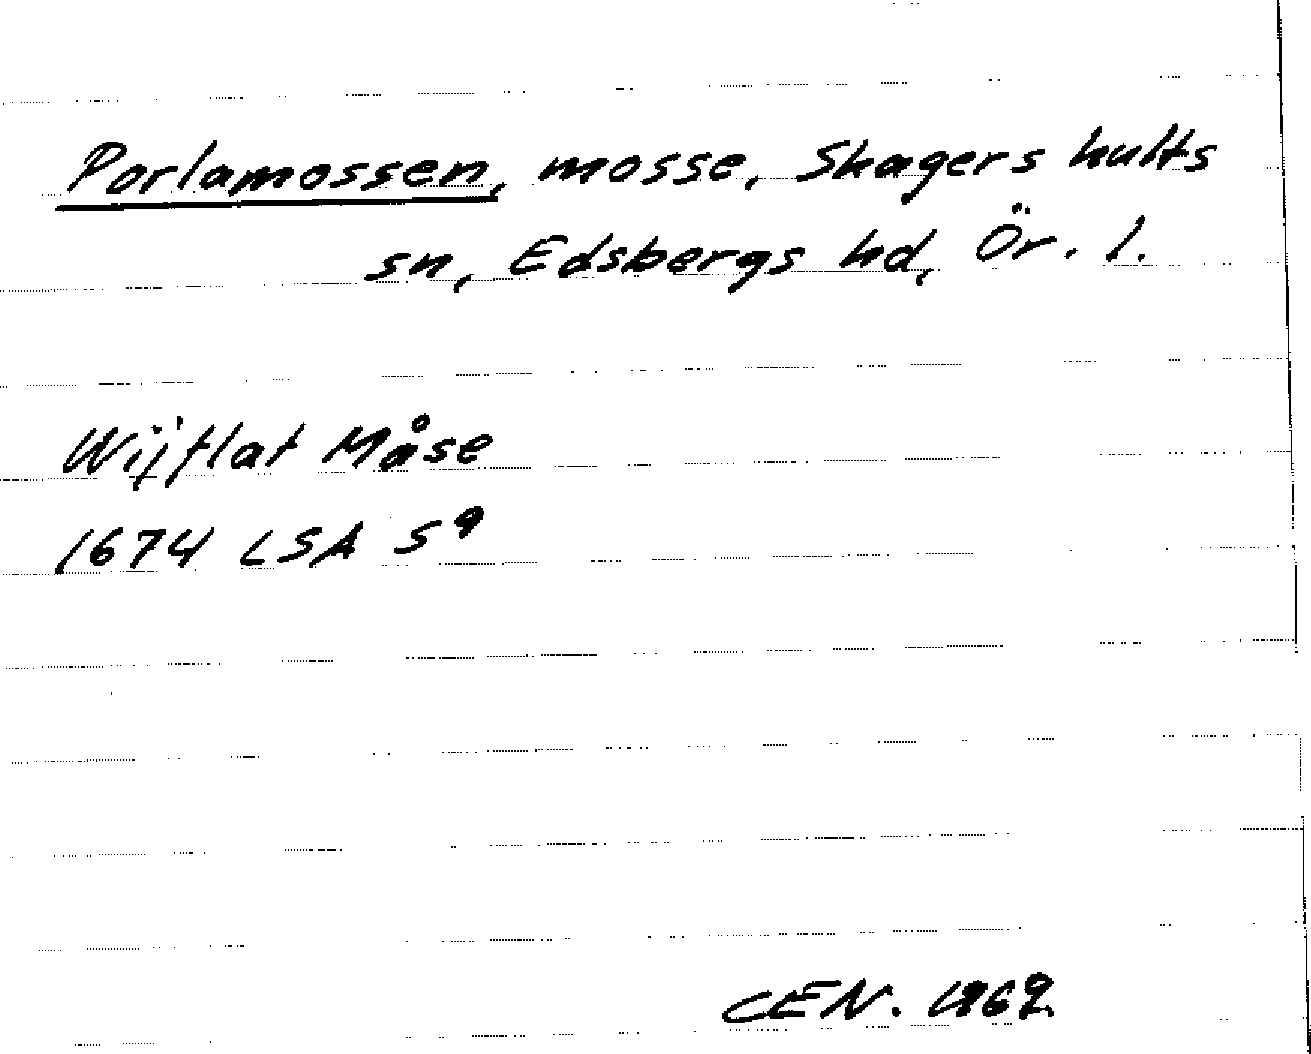 Porlamossen, mosse, Skagershults
sn, Edsbergs hd, Ör. l.
Wijflat Måse
1674 LSA S9
CEN. 1962